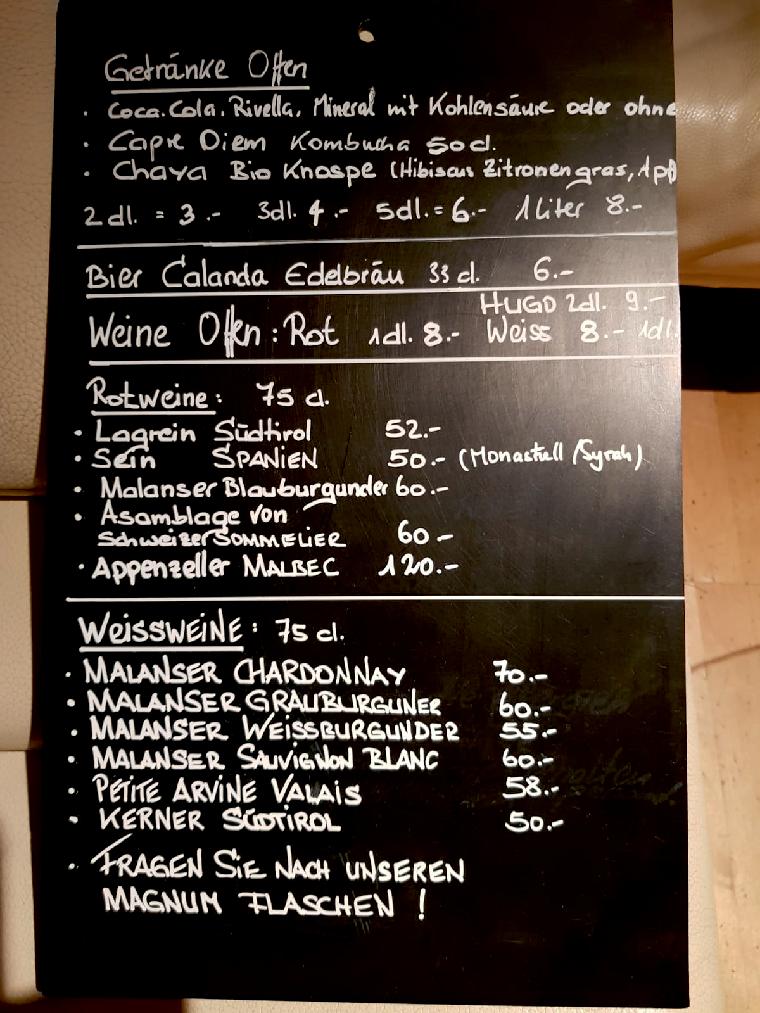 Getränke Offen
• Coca.Cola, Rivella, Mineral mit Kohlensäure oder ohne
• Capre Diem Kombucha 50 cl.
• Chaya Bio Knospe (Hibiscus Zitronengras, Apf
2 dl. = 3.- 3dl. 4.- 5dl. = 6.- 1 Liter 8.-
Bier Calanda Edelbräu 33 cl. 6.-
HUGO 2dl. 9.-
Weine Offen: Rot 1dl. 8.- Weiss 8.- 1dl.
Rotweine: 75 cl.
• Lagrein Südtirol 52.-
• Sein SPANIEN 50.- (Monastrell/Syrah)
• Malanser Blauburgunder 60.-
• Asamblage von
Schweizer SOMMELIER 60.-
• Appenzeller MALBEC 120.-
WEISSWEINE: 75 cl.
• MALANSER CHARDONNAY 70.-
• MALANSER GRAUBURGUNER 60.-
• MALANSER WEISSBURGUNDER 55.-
• MALANSER SAUVIGNON BLANC 60.-
• PETITE ARVINE VALAIS 58.-
• KERNER SÜDTIROL 50.-
• FRAGEN SIE NACH UNSEREN
MAGNUM FLASCHEN !